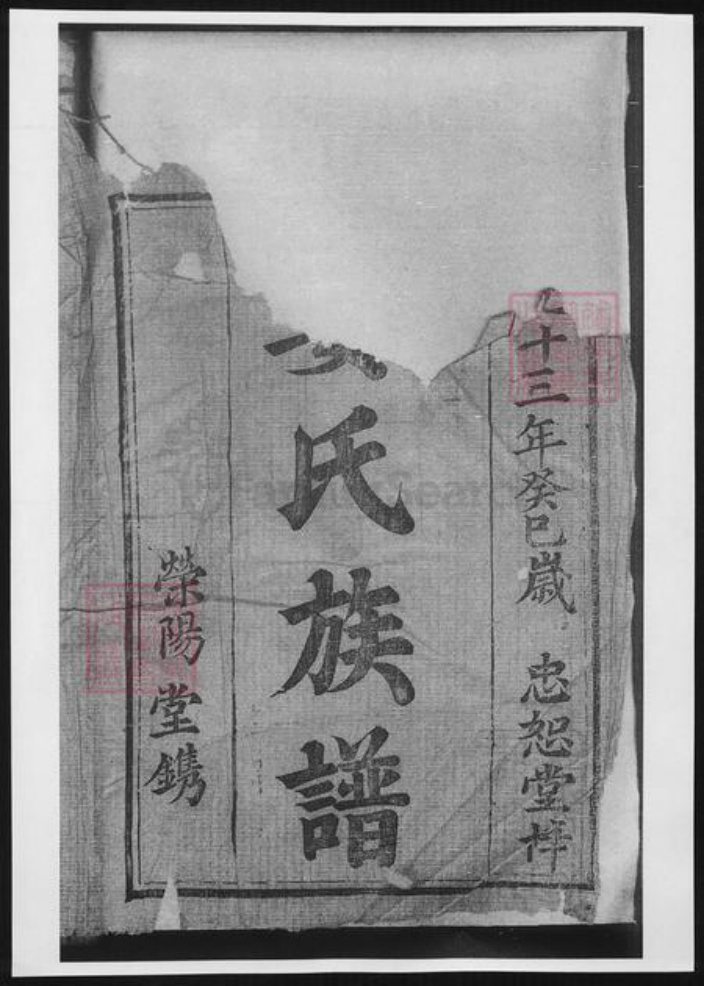 十三年癸巳歳 忠恕堂梓
氏族譜
榮陽堂鐫